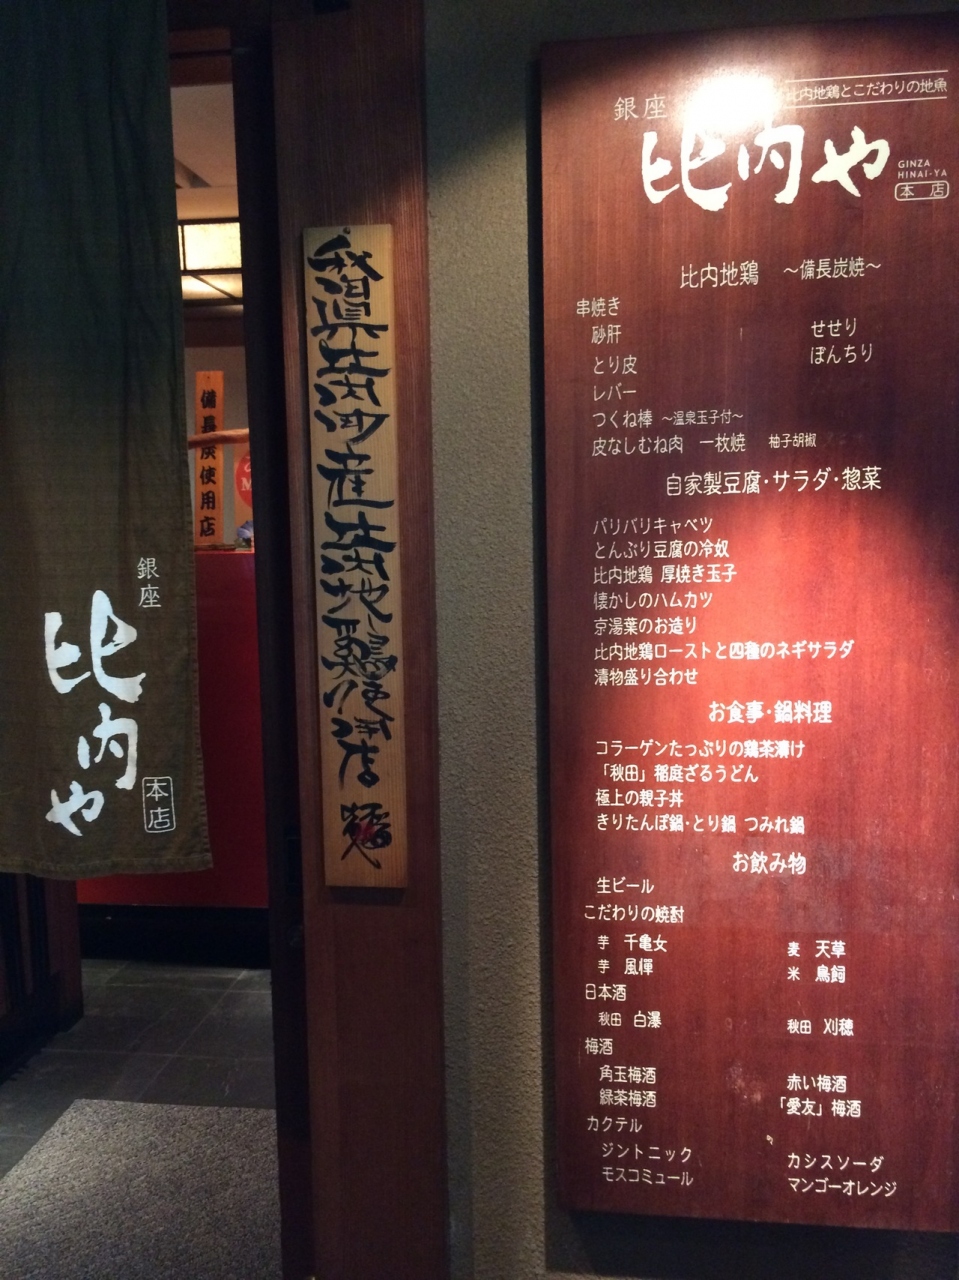 銀座
比内や
本店
備長炭使用店
秋田県比内町産比内地鶏使用店
比内地鶏とこだわりの地魚
銀座
比内や
GINZA
HINAI-YA
本店
比内地鶏 〜備長炭焼〜
串焼き
砂肝 せせり
とり皮 ぼんちり
レバー
つくね棒 〜温泉玉子付〜
皮なしむね肉 一枚焼 柚子胡椒
自家製豆腐・サラダ・惣菜
パリバリキャベツ
とんぶり豆腐の冷奴
比内地鶏 厚焼き玉子
懐かしのハムカツ
京湯葉のお造り
比内地鶏ローストと四種のネギサラダ
漬物盛り合わせ
お食事・鍋料理
コラーゲンたっぷりの鶏茶漬け
「秋田」稲庭ざるうどん
極上の親子丼
きりたんぽ鍋・とり鍋 つみれ鍋
お飲み物
生ビール
こだわりの焼酎
芋 千亀女 麦 天草
芋 風憚 米 鳥飼
日本酒
秋田 白瀑 秋田 刈穂
梅酒
角玉梅酒 赤い梅酒
緑茶梅酒 「愛友」梅酒
カクテル
ジントニック カシスソーダ
モスコミュール マンゴーオレンジ